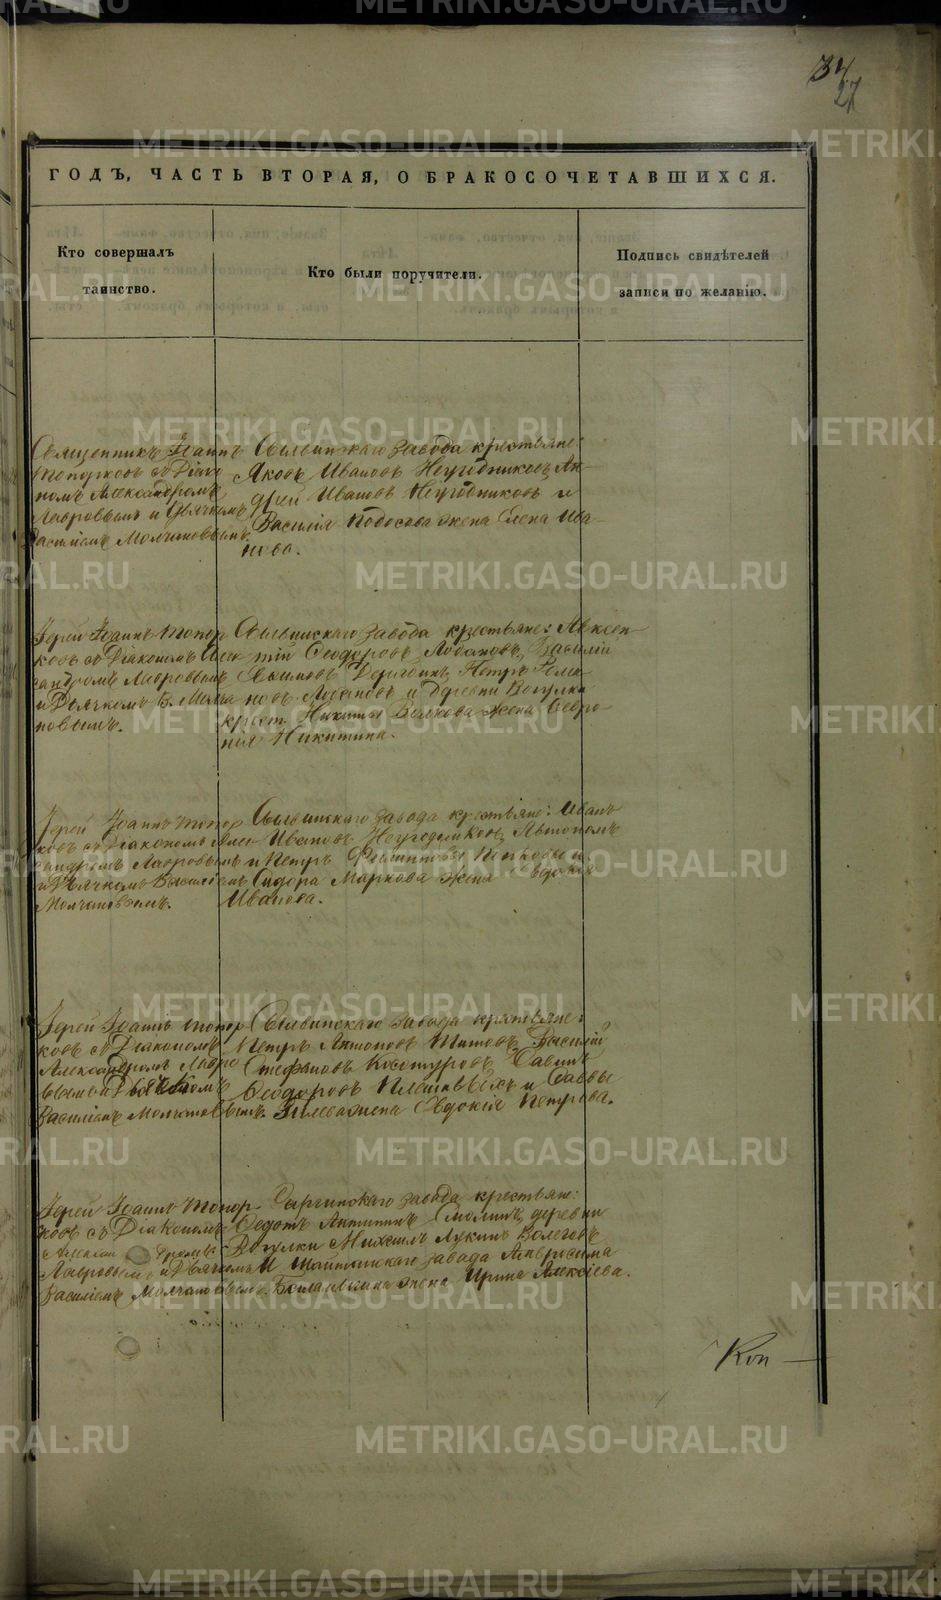 34
27
ГОДЪ, ЧАСТЬ ВТОРАЯ, О БРАКОСОЧЕТАВШИХСЯ.
Кто совершалъ
таинство.
Кто были поручители.
Подпись свидѣтелей
записи по желанію.
Священникъ Іоаннъ
Топорковъ съ Діако
номъ Александромъ
Лавровымъ и Дьячкомъ
Василіемъ Молчановымъ.
Сылвинскаго завода крестьяне:
Яковъ Ивановъ Неугодниковъ, Ан-
дрей Ивановъ Неугодниковъ и
Василія жена Елена Ива-
нова.
Іерей Іоаннъ Топор
ковъ съ Діакономъ Алек
сандромъ Лавровымъ
и Дьячкомъ В. Молча
новымъ.
Сылвинскаго завода крестьяне: Авксен
тій Ѳеодоровъ Лобановъ, Василій
Петръ
новъ Лобановъ и деревни Вогулки
крест. Никиты Волкова жена Ѳевро
нія Никитина.
Іерей Іоаннъ Топор
ковъ съ Діакономъ Алек
сандромъ Лавровымъ
и Дьячкомъ Василіемъ
Молчановымъ.
Сылвинскаго завода крестьяне: Иванъ
Ивановъ Неугодниковъ,
и Петръ Филипповы и
Сидора Маркова жена Евдокія
Иванова.
Іерей Іоаннъ Топор
ковъ съ Діакономъ
Александромъ Лавро
вымъ и Дьячкомъ
Василіемъ Молчановымъ.
Сылвинскаго завода крестьяне:
Петръ Антоновъ Титовъ, Василій
Стефановъ Косотуровъ, Савинъ
Ѳеодоровъ и Саввы
жена Евдокія Петрова.
Іерей Іоаннъ Топор
ковъ съ Діакономъ
Александромъ
Лавровымъ и Дьячкомъ
Василіемъ Молчановымъ.
Саргинскаго завода крестьяне:
Ѳедотъ Антипинъ Смолинъ, деревни
Вогулки Михаилъ Лукинъ Волеговъ
и Шайтанскаго завода
жена Ирина Алексіева.
Коп
METRIKI.GASO-URAL.RU